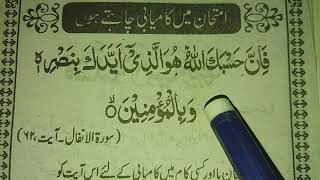 امتحان میں کامیابی چاہتے ہوں
فَاِنَّ حَسْبَكَ اللّٰهُ هُوَ الَّذِیْۤ اَیَّدَكَ بِنَصْرِهٖ
وَبِالْمُؤْمِنِیْنَ
(سورۃ الانفال۔ آیت، ۶۲)
اور کسی کام میں کامیابی کے لئے اس آیت کو